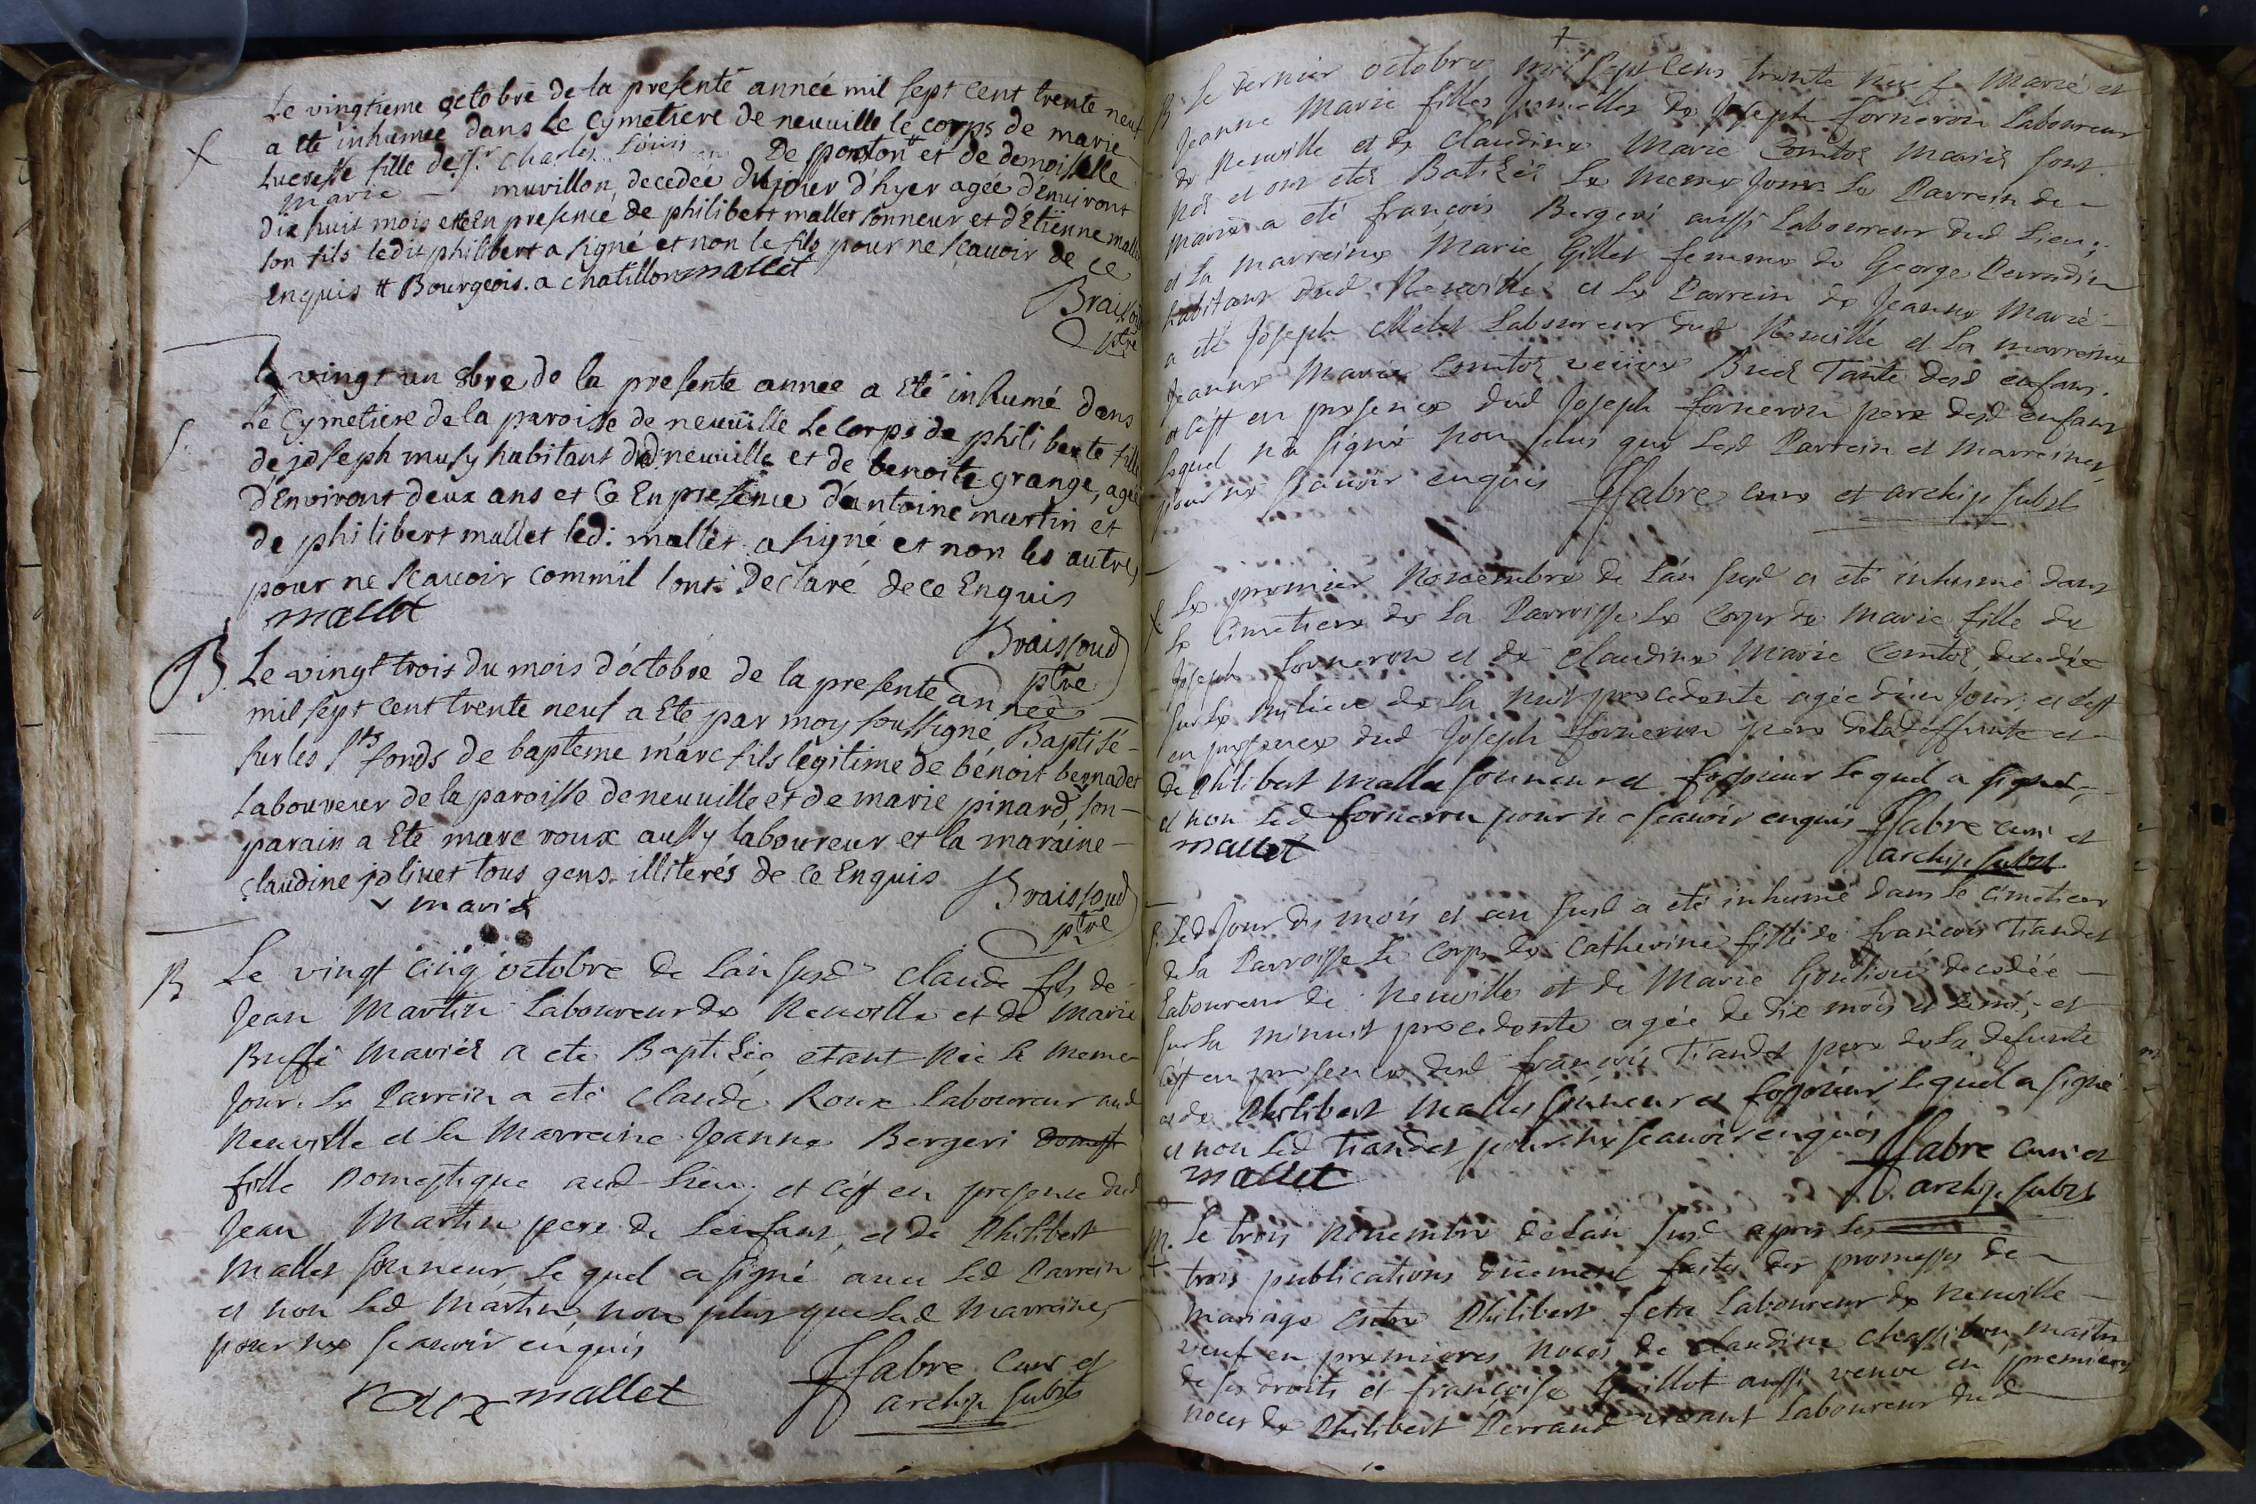 Le vingtieme octobre de la presente année mil sept cent trente neuf
a eté inhumée dans Le Cymetiere de neuuille le corps de marie
Lucresse fille de Sr. Charles Louis De ponton # et de demoiselle
marie muvillon, decedée du jour d'hyer agée d'Enuiront
dix huit mois et En presence de philibert mallet sonneur et d'Etienne mallet
son fils ledit philibert a signé et non le fils pour ne scauoir de ce
Enquis # Bourgeois a chatillon mallet
Braissoud
ptre
f
Le vingt un 8bre de la presente annee a Eté inhumé dans
Le Cymetiere de la paroisse de neuuille Le corps de philiberte fille
de joseph musy habitant dud neuuille et de benoite grange, agée
d'Enuiront deux ans et Ce En presence d'antoine martin et
de philibert mallet led. mallet a signé et non les autres
pour ne scauoir commil lont declaré de ce Enquis
mallet
Braissoud
ptre
B. Le vingt trois du mois d'octobre de la presente année
mil sept cent trente neuf a Eté par moy soussigné Baptisé
sur les sts fonds de bapteme marc fils legitime de benoit bernadet
Laboureur de la paroisse de neuuille et de marie pinard, son
parain a Eté marc roux aussy laboureur et la maraine
claudine joliuet tous gens illiterés de ce Enquis
mariés
Braissoud
ptre
B Le vingt cinq octobre de L'an susd Claude fils de
Jean Martin Laboureur de Neuville et de Marie
Buffi mariés a eté Baptisée etant née le meme
Jour. Le Parrein a eté Claude Roux Laboureur aud
Neuville et la Marreine Jeanne Bergeri domest
fille Domestique aud Lieu; et c'est en presence dud
Jean Martin pere de L'enfant, et de Philibert
Mallet sonneur, Lequel a signé avec Led Parrein
et non Led Martin non plus que Lad Marreine,
pour ne scauoir enquis
roux mallet
ffabre Curé et
archip. subst
B Le dernier octobre mil sept cens trente neuf Marie et
Jeanne Marie filles Jumelles de Joseph forneron Laboureur
de Neuville et de Claudine Marie Comtet mariés sont
nés et ont etés Batisées Le meme Jour. Le Parrein de
Marie a eté françois Bergeri aussi Laboureur dud Lieu;
et La marreine Marie Gillet femme de George Perrodin
habitant dud Neuville; et Le Parrein de Jeanne Marie
a eté Joseph Laboureur dud Neuville et La marreine
Jeanne Marie Comtet veuve Tante desd enfans.
et c'est en presence dud Joseph forneron pere desd enfans
Lequel n'a signé non plus que Lesd Parrein et Marreines,
pour ne scauoir enquis ffabre curé et archip subst
f. Le premier Novembre de L'an susd a eté inhumé dans
Le Cimetiere de La Parroisse Le Corps de Marie fille de
Joseph forneron et de Claudine Marie Comtet, decedée
sur Le milieu de La nuit precedente agée d'un Jour; et c'est
en presence dud Joseph forneron pere de la deffunte et
de Philibert Mallet sonneur et fossoieur Lequel a signé,
et non Led forneron pour ne scauoir enquis ffabre curé et
mallet
archip. subst
f. Led. Jour de mois et an susd a eté inhumé dans Le Cimetiere
de La Parroisse Le Corps de Catherine fille de françois Tiandet
Laboureur de Neuville et de Marie decedée
sur La minuit precedente agée de dix mois et demi; et
c'est en presence dud françois Tiandet pere de La defunte
et de Philibert Mallet sonneur et fossoieur Lequel a signé
et non Led Tiandet pour ne scauoir enquis
mallet
ffabre Curé et
archip. subst
M. Le trois Novembre de L'an susd apres Les
trois publications duement faites des promesses de
Mariage entre Philibert Laboureur de Neuville
veuf en premieres noces de Claudine maitre
de ses droits et françoise Guillot aussi veuve en premieres
noces de Philibert Perraud vivant Laboureur dud